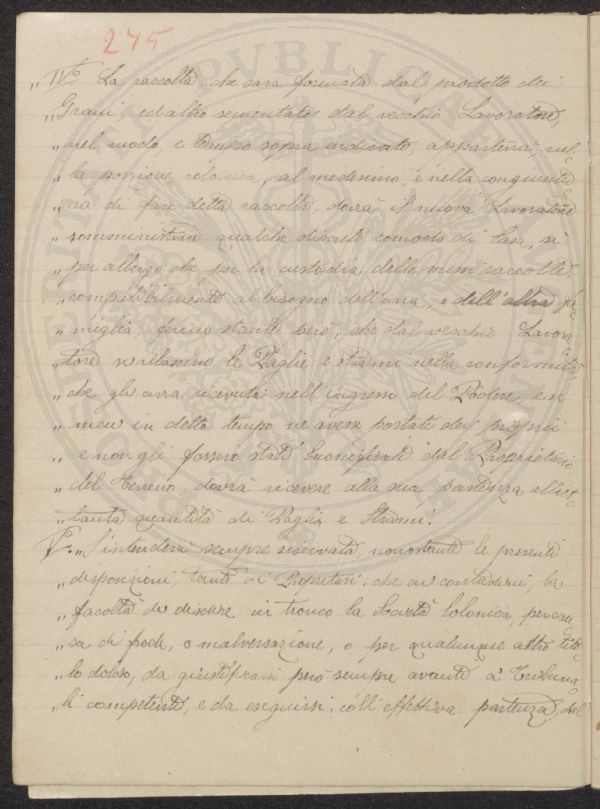 275
„ IV.o La raccolta che sarà formata dal prodotto dei
„ Grani, ed altro sementato dal vecchio Lavoratore,
„ nel modo, e tempo sopra indicato, apparterrà, nel=
„ la porzione colonica, al medesimo, e nella congiuntu=
„ ra di fare detta raccolta, dovrà il nuovo Lavoratore
„ somministrare qualche discreto comodo di Casa, sì
„ per albergo che per la custodia delle messi raccolte,
„ compatibilmente al bisogno dell'una, e dell'altra fa=
„ miglia, fermo stante però, che dal vecchio Lavora=
„ tore si rilascino le Paglie e strami nella conformità,
„ che gli avrà ricevuti nell'ingresso del Podere, e se
„ mai in detto tempo ne avesse portate dei proprj
„ e non gli fossero stati buonificati dal Proprietario
„ del terreno dovrà ricevere alla sua partenza altret=
„ tanta quantità di Paglia e Strami.
V.o „ S'intenderà sempre riservata, nonostante le presenti
„ disposizioni, tanto ai Proprietari, che ai contadini, la
„ facoltà di disdire in tronco la Società Colonica, per cau=
„ sa di frode, o malversazione, o per qualunque altro tito=
„ lo doloso, da giustificarsi però sempre avanti a' Tribuna=
„ li competenti, e da eseguirsi, coll'effettiva partenza, dal